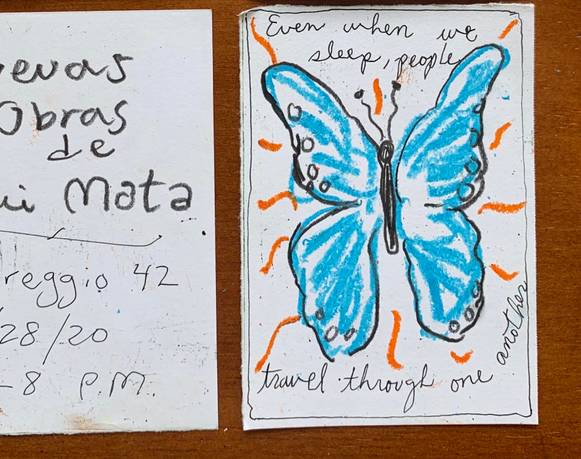 evas
Obras
de
Mata
reggio 42
28/20
-8 P.M.
Even when we
sleep, people
travel through one another